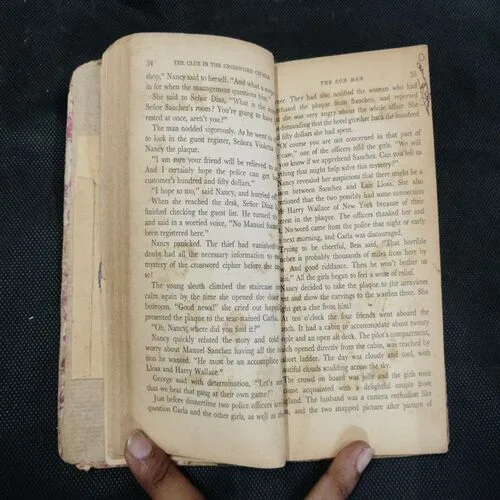 54 THE CLUE IN THE CROSSWORD CIPHER
shop," Nancy said to herself. "And what a
in for when the management questions him."
She said to Señor Diaz, "What is the
Señor Sanchez's room? You're going to have
rested at once, aren't you?"
The man nodded vigorously. As he went
to look in the guest register, Señora Violetta
Nancy the plaque.
"I am sure your friend will be relieved to
And I certainly hope the police can get
customer's hundred and fifty dollars."
"I hope so too," said Nancy, and hurried off.
When she reached the desk, Señor Diaz
finished checking the guest list. He turned
and said in a worried voice, "No Manuel
been registered here."
Nancy panicked. The thief had vanished
doubt had all the necessary information to
mystery of the crossword cipher before the
so!
The young sleuth climbed the staircase
calm again by the time she opened the door
bedroom. "Good news!" she cried out
presented the plaque to the tear-stained Carla.
"Oh, Nancy, where did you find it?"
Nancy quickly related the story and told
worry about Manuel Sanchez having all the
tion he wanted. "He must be an accomplice
Llosa and Harry Wallace."
George said with determination, "Let's see
that we beat that gang at their own game!"
Just before dinnertime two police officers
question Carla and the other girls, as well as
THE CON MAN 55
They had also notified the woman who had
the plaque from Sanchez, and reported
she was very angry about the whole affair. She
demanding that the hotel give her back the hundred
fifty dollars she had spent.
"Of course you are not concerned in that part of
case," one of the officers told the girls. "We will
you know if we apprehend Sanchez. Can you tell us
thing that might help solve this mystery?"
Nancy revealed her suspicions that there might be a
between Sanchez and Luis Llosa. She also
mentioned that the two possibly had some connection
Harry Wallace of New York because of their
interest in the plaque. The officers thanked her and
No word came from the police that night or early
next morning, and Carla was discouraged.
Trying to be cheerful, Bess said, "That horrible
Sanchez is probably thousands of miles from here by
And good riddance. Then he won't bother us
All the girls began to feel a sense of relief.
Nancy decided to take the plaque to the arrayanes
and show the carvings to the warden there. She
get a clue from him!
At ten o'clock the four friends went aboard the
It had a cabin to accommodate about twenty
and an open aft deck. The pilot's compartment,
opened directly from the cabin, was reached by
short ladder. The day was cloudy and cool, with
clouds scudding across the sky.
The crowd on board was jolly and the girls soon
acquainted with a delightful couple from
The husband was a camera enthusiast like
and the two snapped picture after picture of